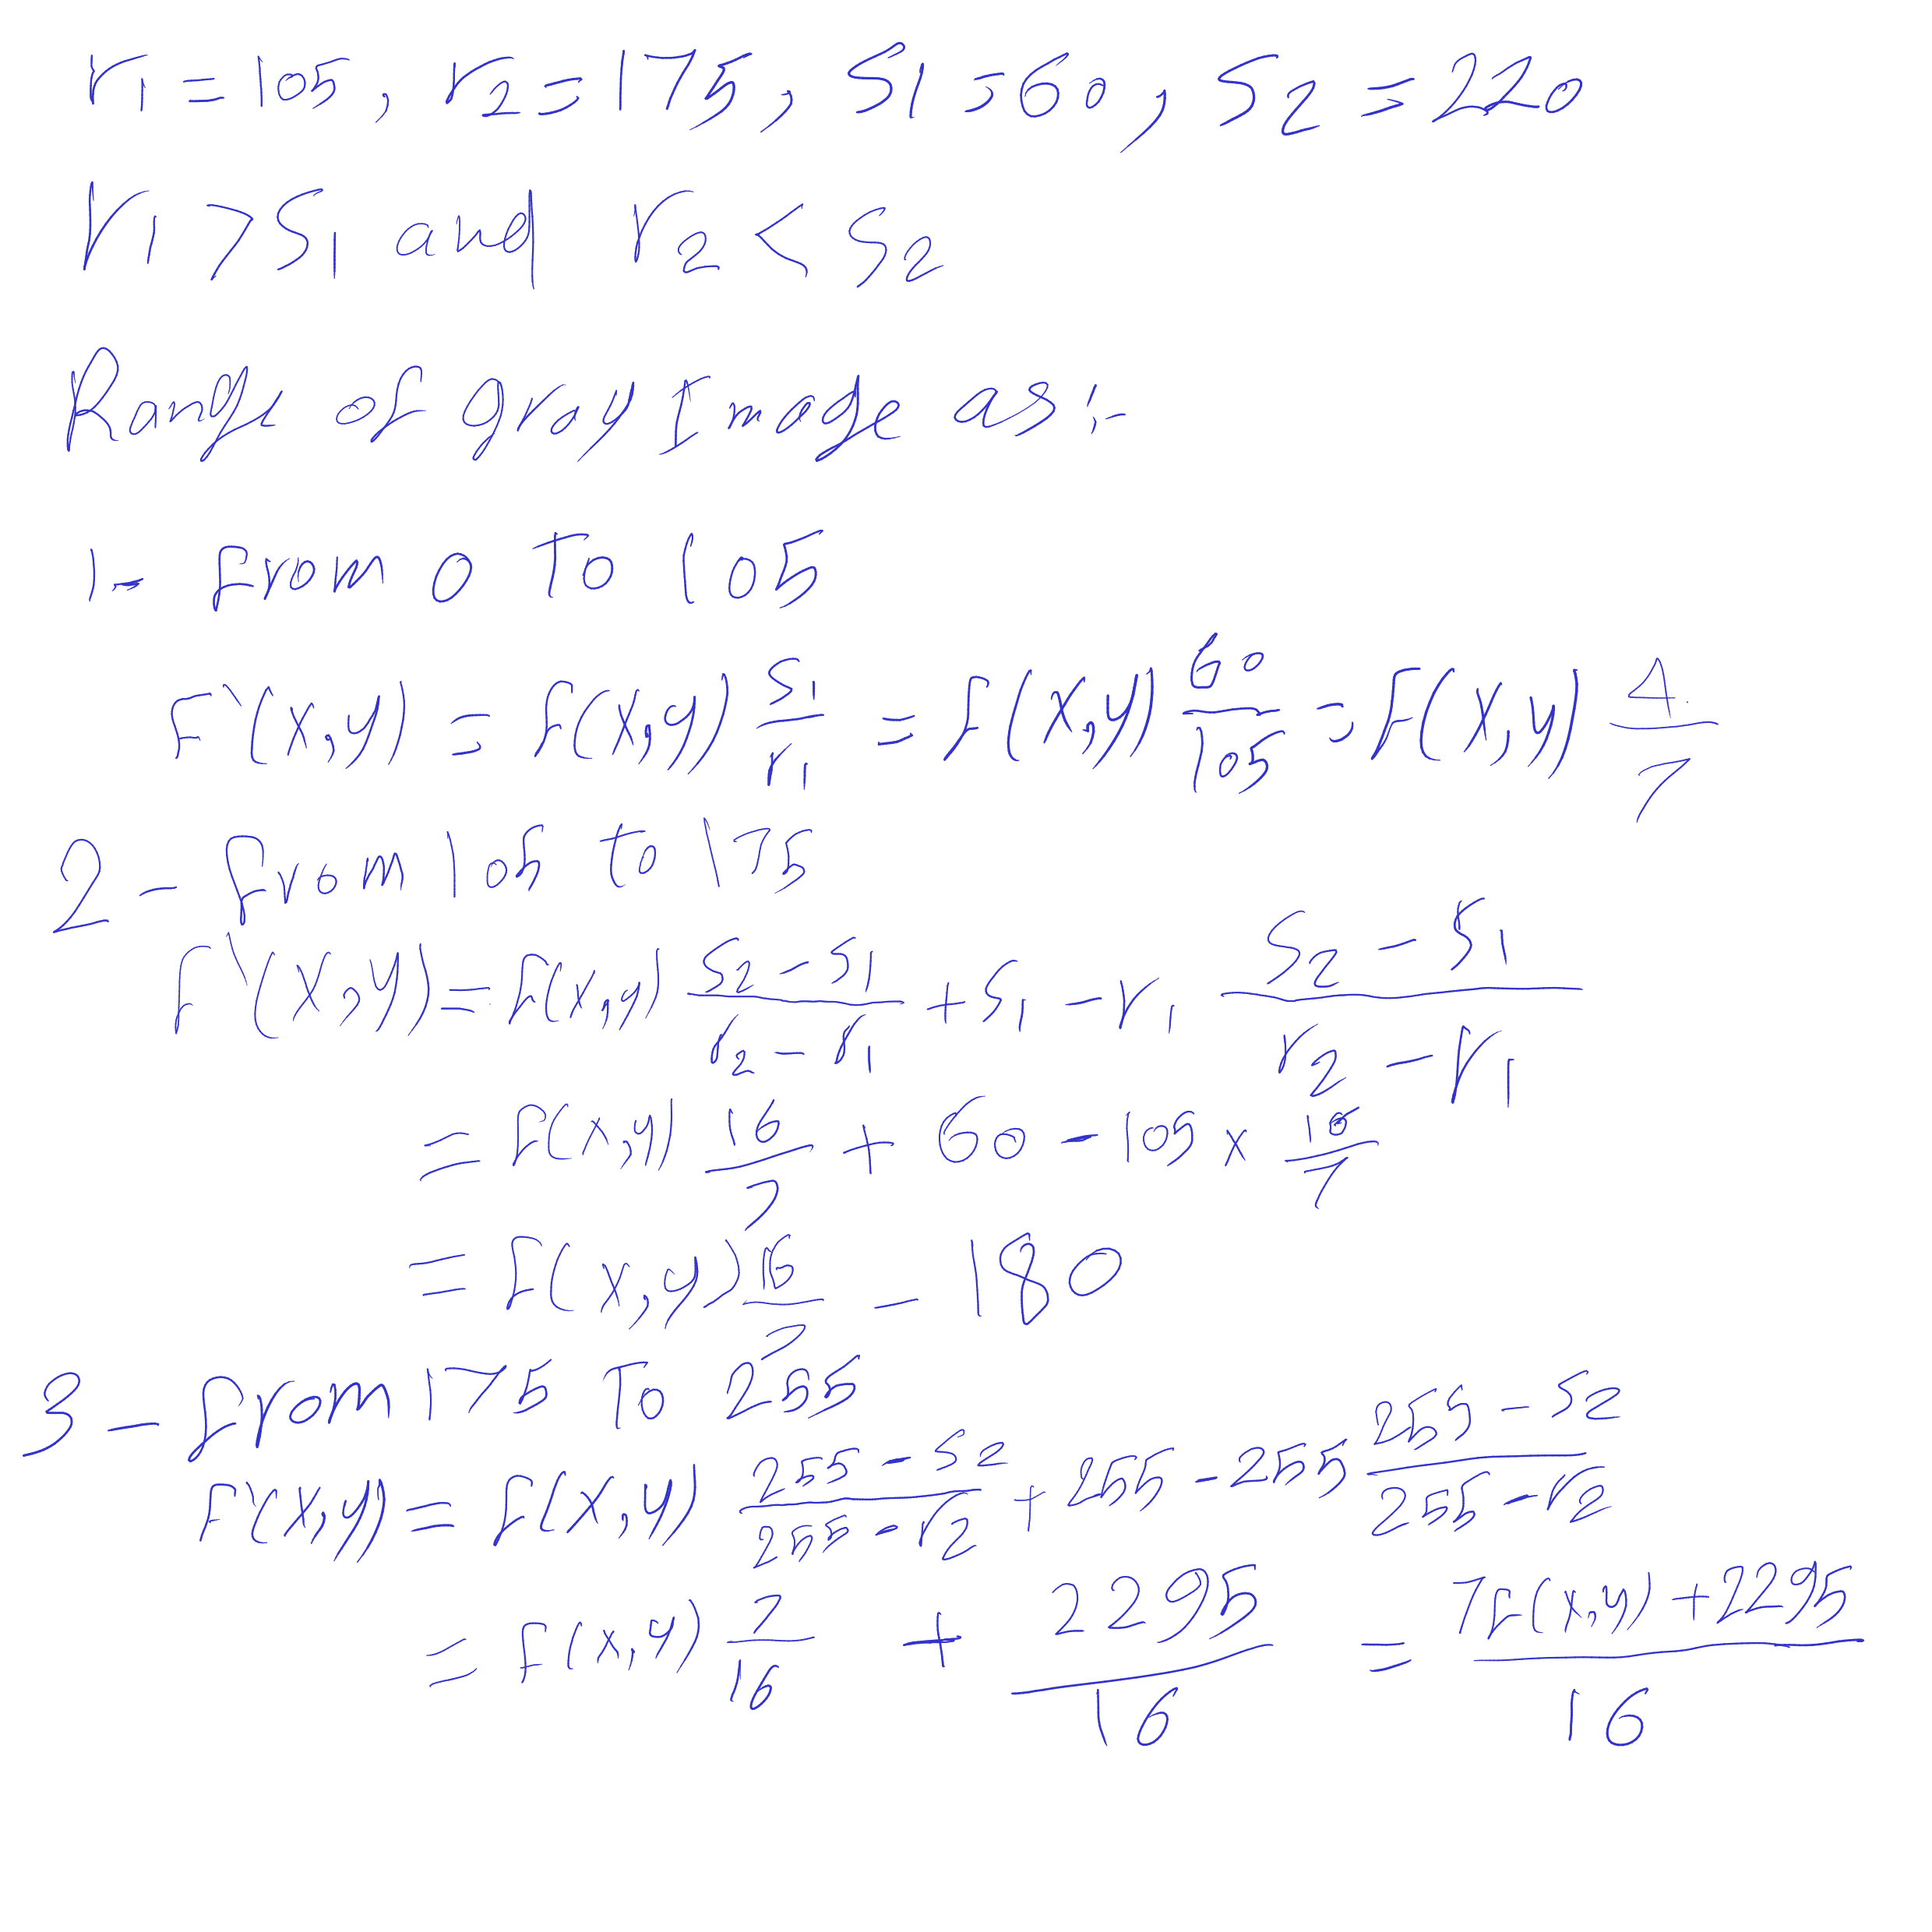 r1 = 105, r2 = 175, S1 = 60, S2 = 220
r1 > S1 and r2 < S2
Range of gray Image as :-
1- from 0 To 105
F`(x,y) = f(x,y) S1/r1 = f(x,y) 60/105 = f(x,y) 4/7
2- from 105 to 175
F`(x,y) = f(x,y) (S2-S1)/(r2-r1) + S1 - r1 (S2-S1)/(r2-r1)
= f(x,y) 16/7 + 60 - 105 x 16/7
= f(x,y) 16/7 - 180
3- from 175 To 255
F`(x,y) = f(x,y) (255-S2)/(255-r2) + 255 - 255 (255-S2)/(255-r2)
= f(x,y) 7/16 + 2295/16 = (7f(x,y)+2295)/16